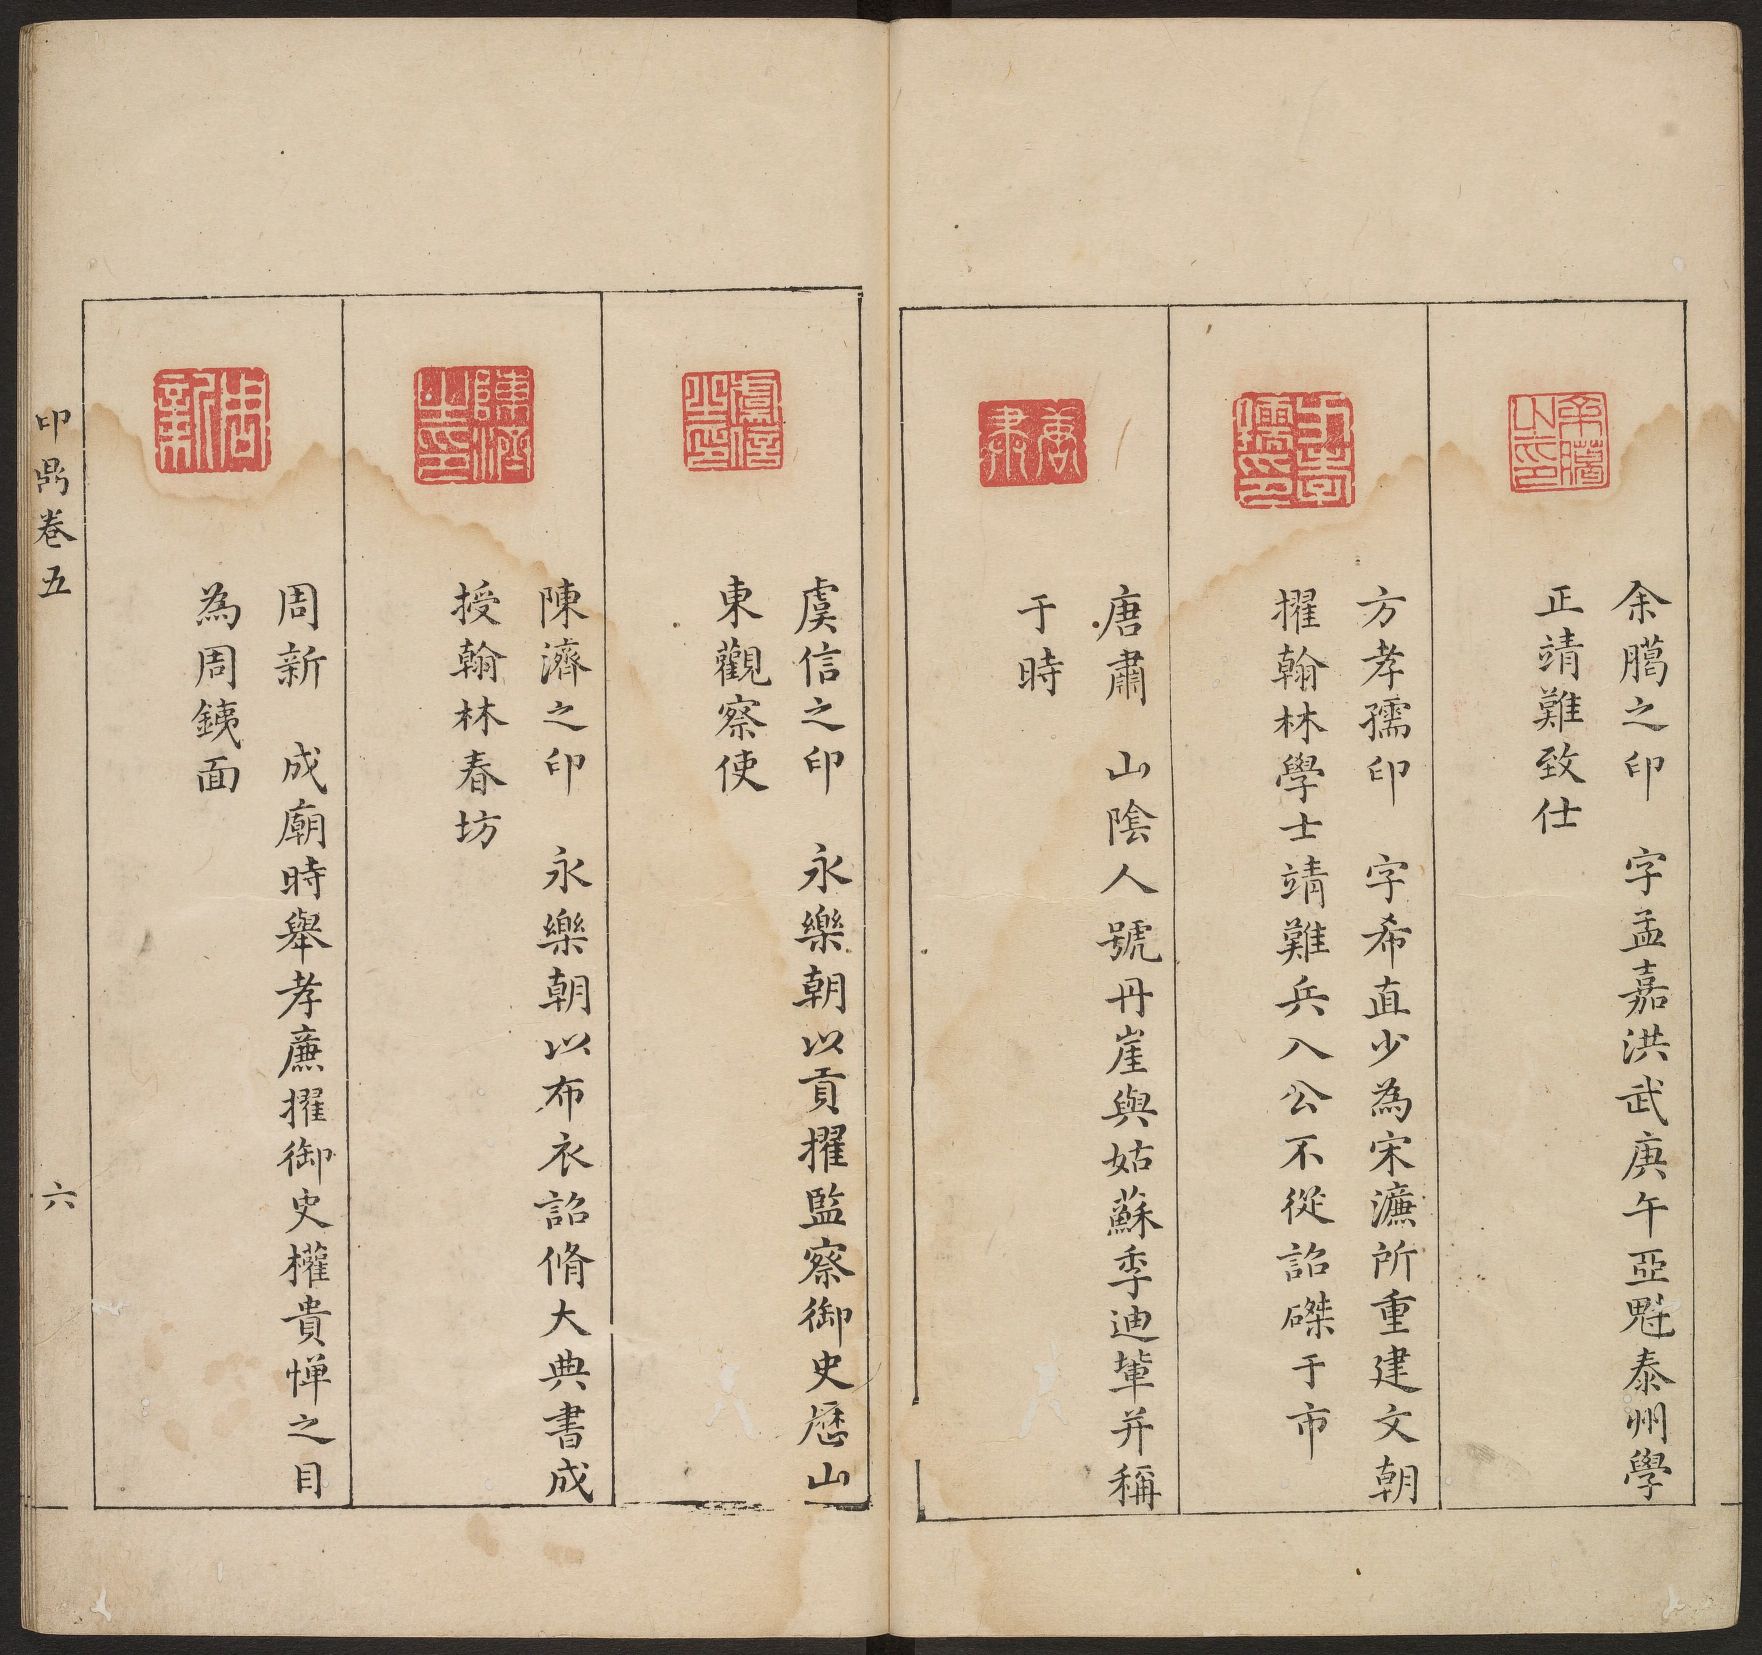 余臈之印　字孟嘉洪武庚午亞魁泰州學
正靖難致仕
方孝孺印　字希直少為宋濂所重建文朝
擢翰林學士靖難兵入公不從詔磔于市
唐肅　山陰人號丹崖與姑蘇季迪輩并稱
于時
虞信之印　永樂朝以貢擢監察御史歷山
東觀察使
陳濟之印　永樂朝以布衣詔脩大典書成
授翰林春坊
周新　成廟時舉孝廉擢御史權貴惮之目
為周銕面
印鼎卷五
六
余臈之印
方孝孺印
唐肅
虞信之印
陳濟之印
周新